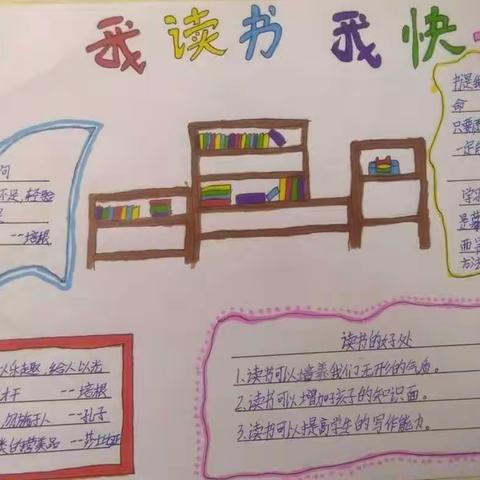 我读书 我快
书是
命
只要
一定
学
是
西
方法
问
不足,经验
--培根
读书的好处
1.读书可以培养我们无形的气质。
2.读书可以增加孩子的知识面。
3.读书可以提高学生的写作能力。
以乐趣,给人以光
才干 --培根
勿施于人 --孔子
类的营养品 --莎士比亚